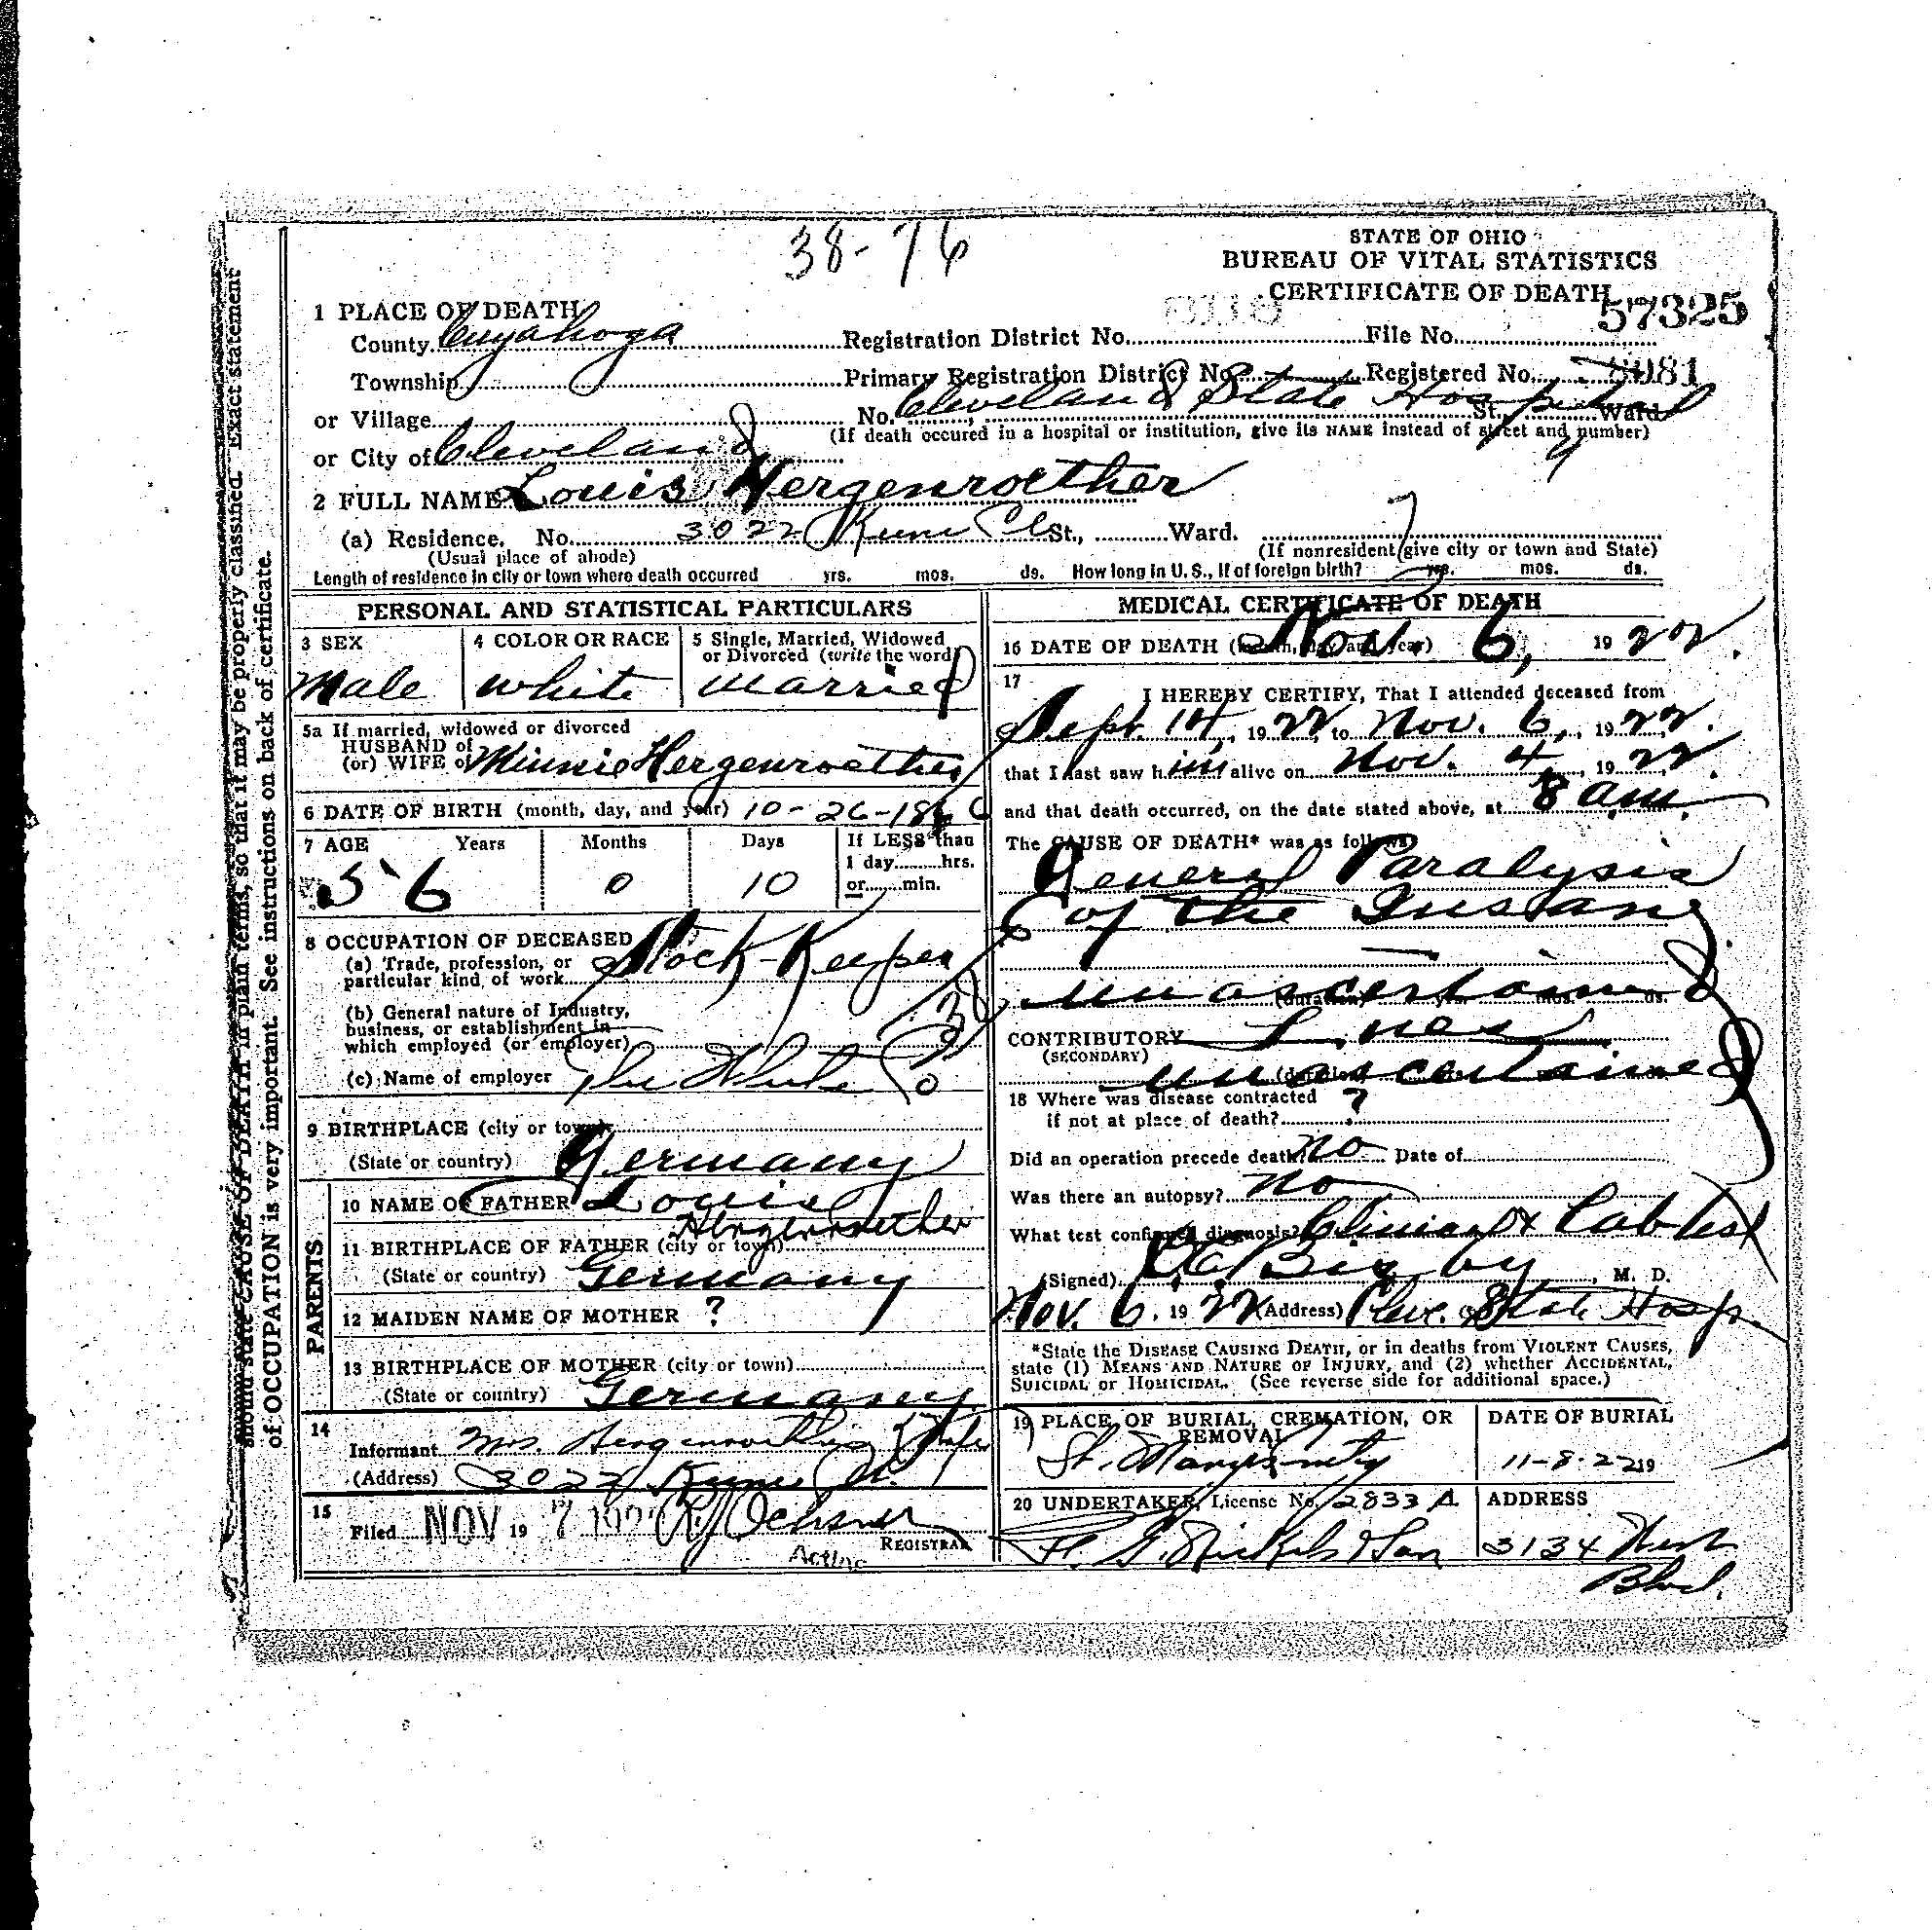 38-76
STATE OF OHIO
BUREAU OF VITAL STATISTICS
CERTIFICATE OF DEATH
57325
1 PLACE OF DEATH
County Cuyahoga Registration District No. File No.
Township Primary Registration District No. Registered No. 8081
or Village No. Cleveland State Hospital St., Ward
(If death occured in a hospital or institution, give its NAME instead of street and number)
or City of Cleveland
2 FULL NAME Louis Hergenroether
(a) Residence. No. 3022 St., Ward.
(Usual place of abode) (If nonresident give city or town and State)
Length of residence in city or town where death occurred yrs. mos. ds. How long in U. S., if of foreign birth? yrs. mos. ds.
PERSONAL AND STATISTICAL PARTICULARS
3 SEX 4 COLOR OR RACE 5 Single, Married, Widowed
or Divorced (write the word)
Male white married
5a If married, widowed or divorced
HUSBAND of
(or) WIFE of Minnie Hergenroether
6 DATE OF BIRTH (month, day, and year) 10-26-1866
7 AGE Years Months Days If LESS than
1 day hrs.
or min.
56 0 10
8 OCCUPATION OF DECEASED
(a) Trade, profession, or
particular kind of work Stock-Keeper
(b) General nature of Industry,
business, or establishment in
which employed (or employer)
(c) Name of employer The White Co
9 BIRTHPLACE (city or town)
(State or country) Germany
PARENTS
10 NAME OF FATHER Louis
Hergenroether
11 BIRTHPLACE OF FATHER (city or town)
(State or country) Germany
12 MAIDEN NAME OF MOTHER ?
13 BIRTHPLACE OF MOTHER (city or town)
(State or country) Germany
14
Informant Mrs. Hergenroether
(Address) 3022
15
Filed NOV 19 7 1922 Ochsner
REGISTRAR
Acting
MEDICAL CERTIFICATE OF DEATH
16 DATE OF DEATH (month, day, and year) Nov. 6, 1922.
17
I HEREBY CERTIFY, That I attended deceased from
Sept. 14, 1922, to Nov. 6, 1922.
that I last saw him alive on Nov. 4, 1922.
and that death occurred, on the date stated above, at 8 a.m.
The CAUSE OF DEATH* was as follows:
General Paralysis
of the Insane
unascertained
(duration) yrs. mos. ds.
CONTRIBUTORY
(SECONDARY)
unascertained
(duration)
18 Where was disease contracted
if not at place of death? ?
Did an operation precede death? no Date of
Was there an autopsy? no
What test confirmed diagnosis? Clinical & Lab test
(Signed) Bigby, M. D.
Nov. 6, 1922 (Address) Cleve. State Hosp.
*State the DISEASE CAUSING DEATH, or in deaths from VIOLENT CAUSES,
state (1) MEANS AND NATURE OF INJURY, and (2) whether ACCIDENTAL,
SUICIDAL or HOMICIDAL. (See reverse side for additional space.)
19 PLACE OF BURIAL, CREMATION, OR
REMOVAL
DATE OF BURIAL
St. Marys 11-8-22 19
20 UNDERTAKER, License No. 2833 A. ADDRESS
& Son 3134 West
Blvd.
should state CAUSE OF DEATH in plain terms, so that it may be properly classified. Exact statement
of OCCUPATION is very important. See instructions on back of certificate.